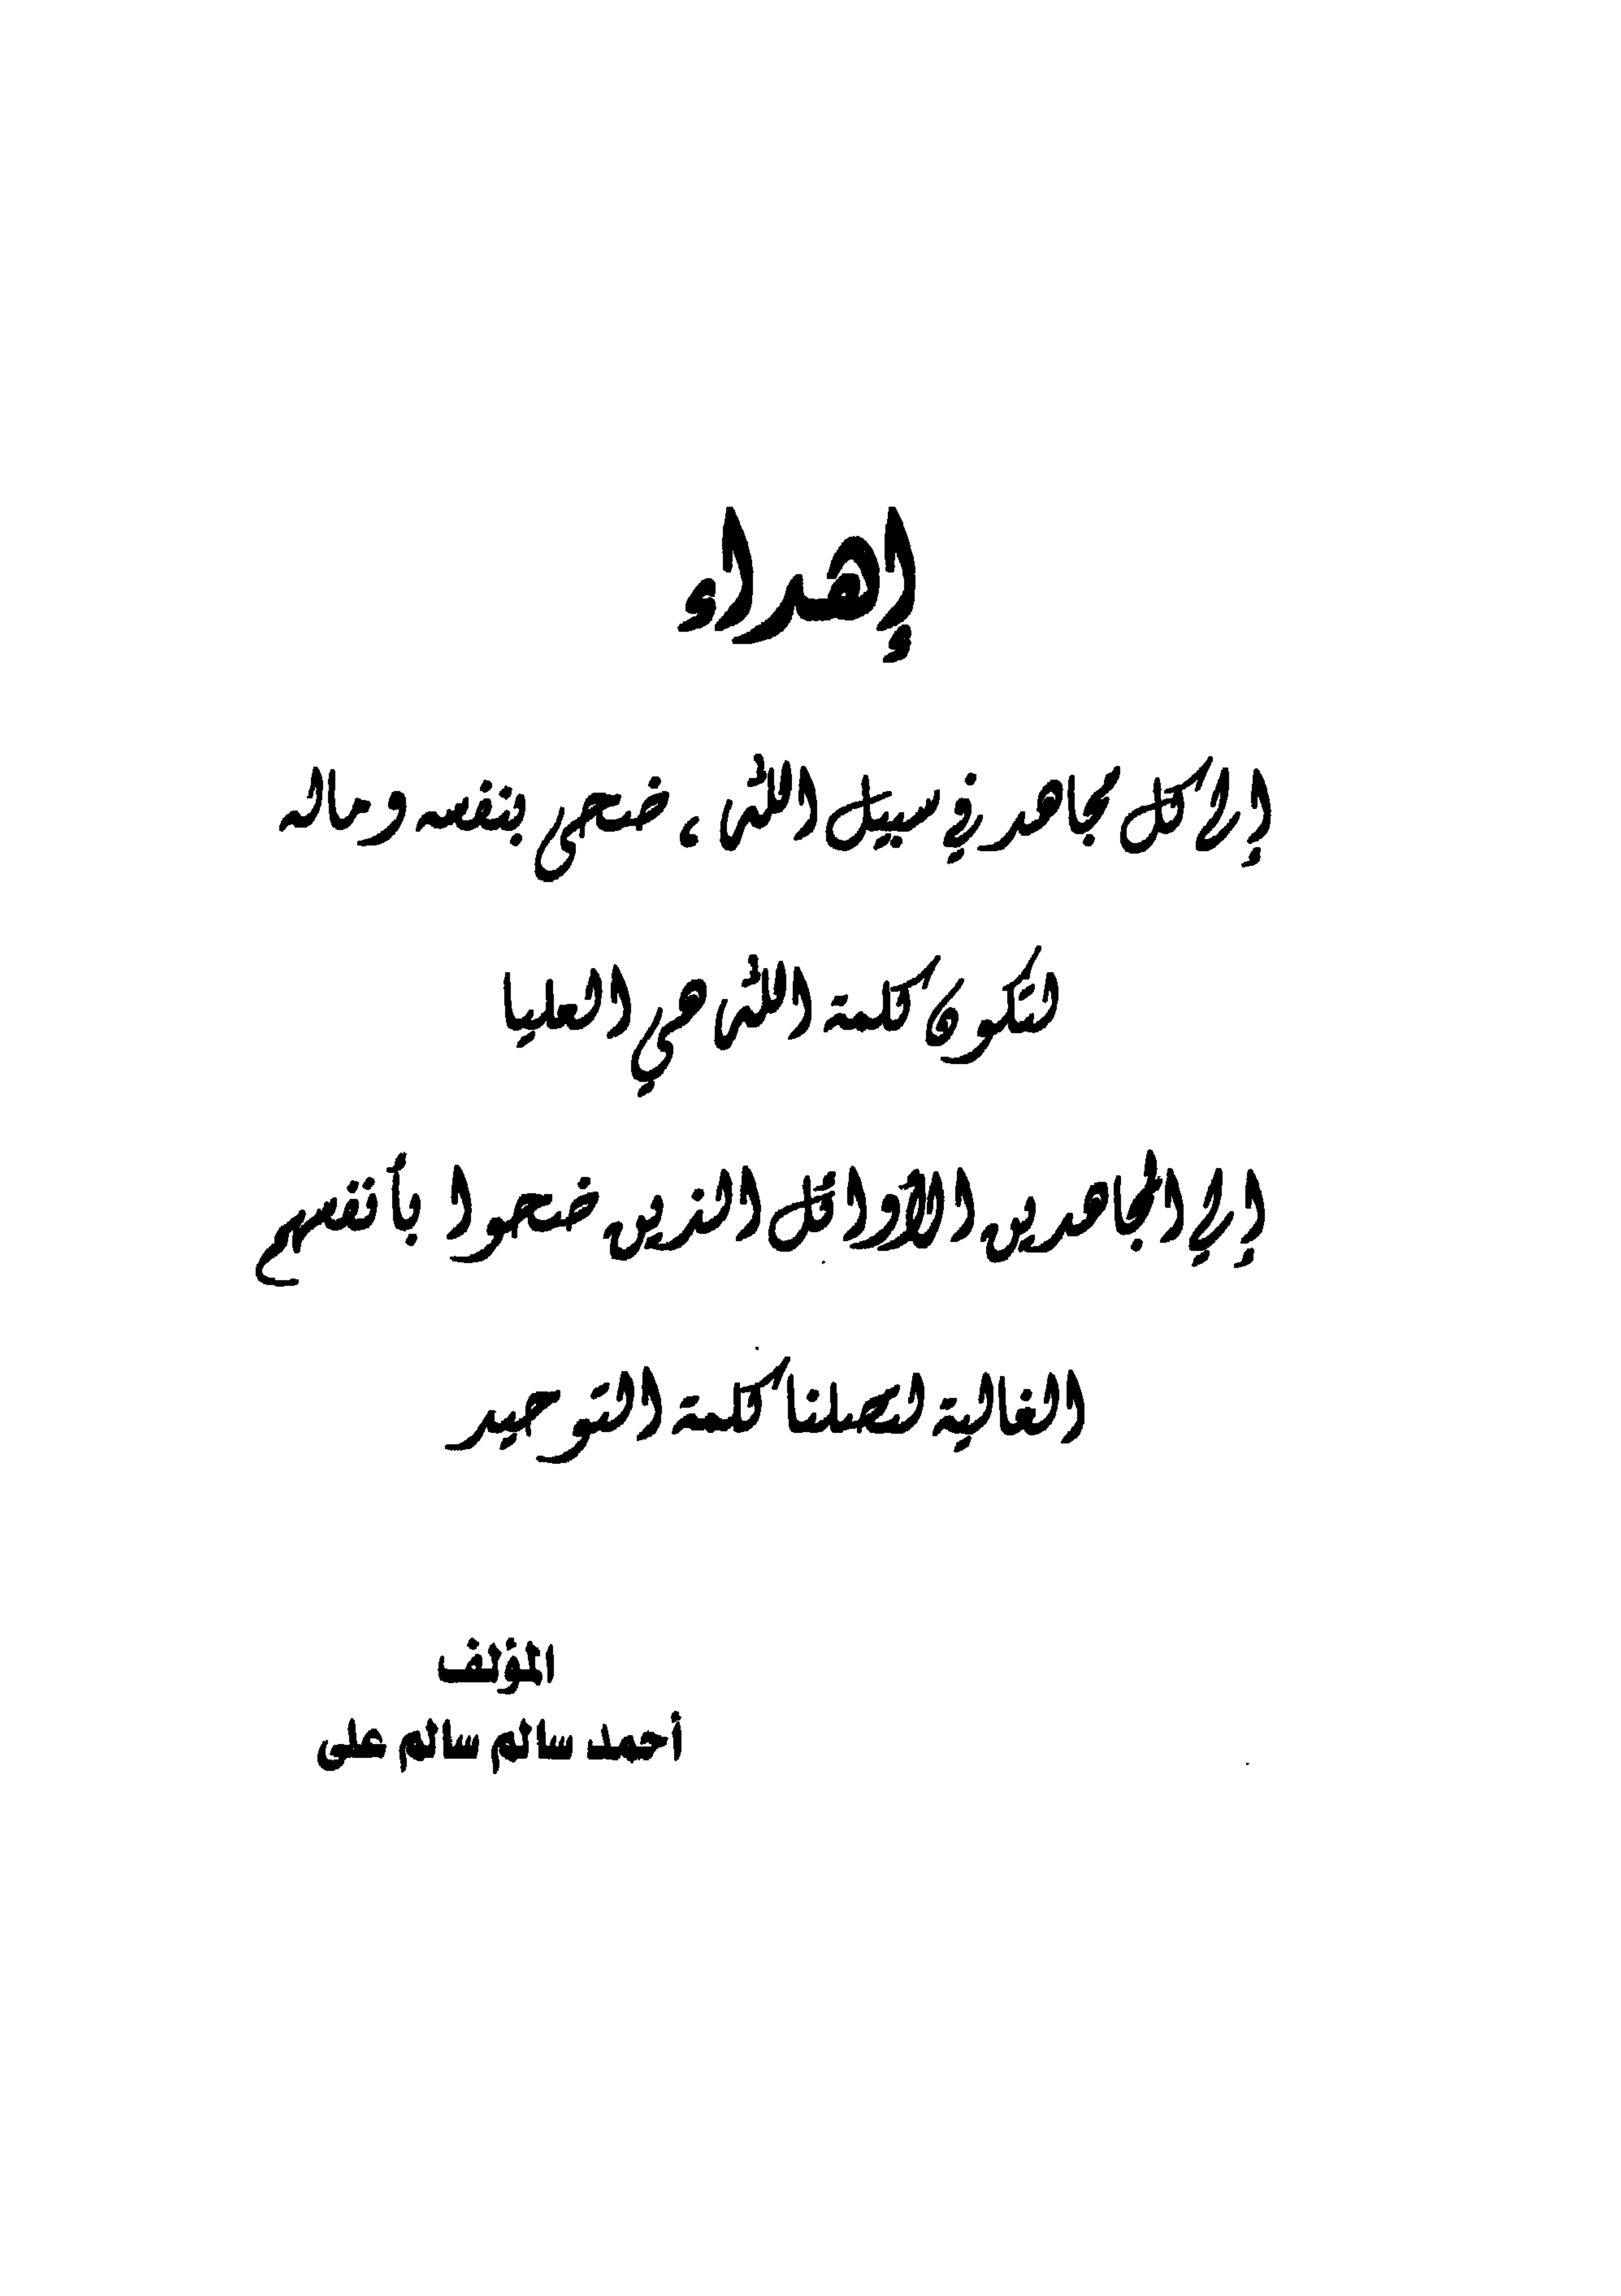 إهداء
إلى كل مجاهد في سبيل الله ، ضحى بنفسه وماله
لتكون كلمة الله هي العليا
إلي المجاهدين الأوائل الذين ضحوا بأنفسهم
الغالية لتصلنا كلمة التوحيد
المؤلف
أحمد سالم سالم على